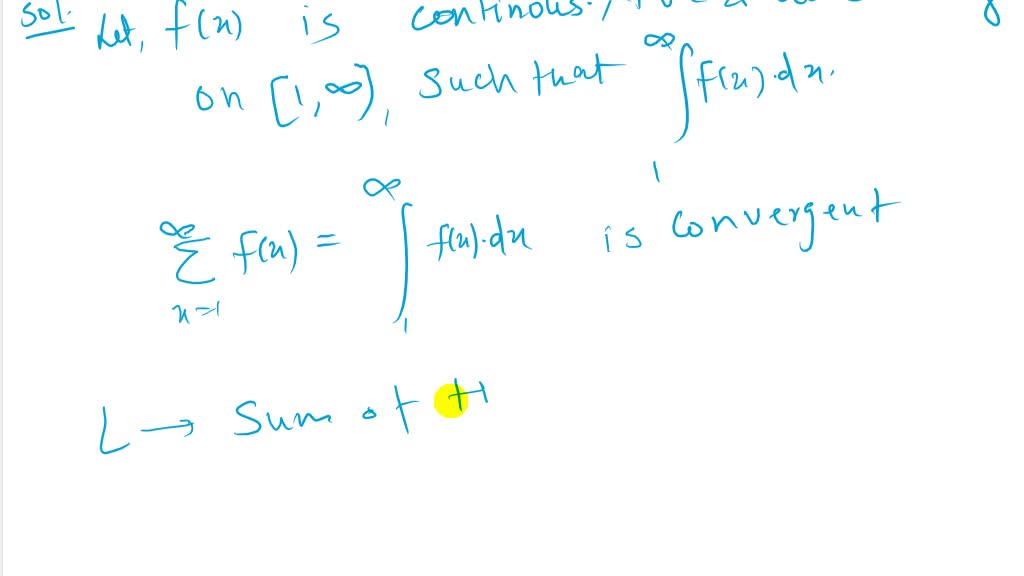 Sol. Let, f(x) is continous,
on [1,∞), such that ∞∫1 f(x).dx.
∞Σx=1 f(x) = ∞∫1 f(x).dx is convergent
L → Sum of th